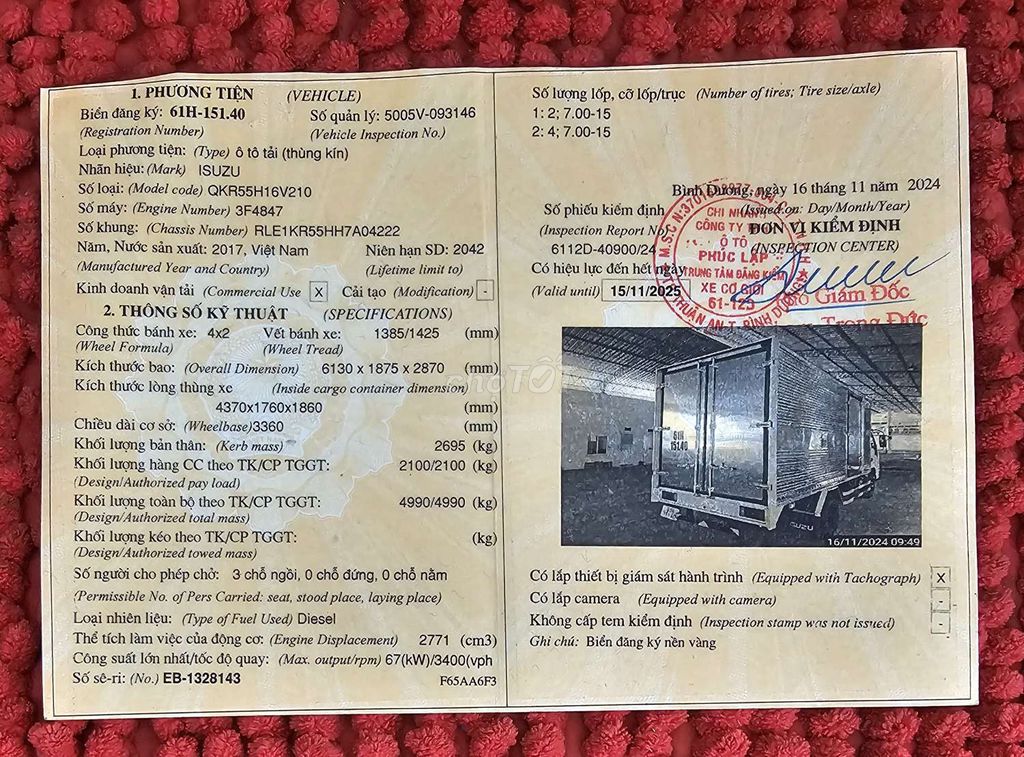 1. PHƯƠNG TIỆN (VEHICLE)
Biển đăng ký: 61H-151.40 Số quản lý: 5005V-093146
(Registration Number) (Vehicle Inspection No.)
Loại phương tiện: (Type) ô tô tải (thùng kín)
Nhãn hiệu: (Mark) ISUZU
Số loại: (Model code) QKR55H16V210
Số máy: (Engine Number) 3F4847
Số khung: (Chassis Number) RLE1KR55HH7A04222
Năm, Nước sản xuất: 2017, Việt Nam Niên hạn SD: 2042
(Manufactured Year and Country) (Lifetime limit to)
Kinh doanh vận tải (Commercial Use X Cải tạo (Modification) -
2. THÔNG SỐ KỸ THUẬT (SPECIFICATIONS)
Công thức bánh xe: 4x2 Vết bánh xe: 1385/1425 (mm)
(Wheel Formula) (Wheel Tread)
Kích thước bao: (Overall Dimension) 6130 x 1875 x 2870 (mm)
Kích thước lòng thùng xe (Inside cargo container dimension)
4370x1760x1860 (mm)
Chiều dài cơ sở: (Wheelbase)3360 (mm)
Khối lượng bản thân: (Kerb mass) 2695 (kg)
Khối lượng hàng CC theo TK/CP TGGT: 2100/2100 (kg)
(Design/Authorized pay load)
Khối lượng toàn bộ theo TK/CP TGGT: 4990/4990 (kg)
(Design/Authorized total mass)
Khối lượng kéo theo TK/CP TGGT: (kg)
(Design/Authorized towed mass)
Số người cho phép chở: 3 chỗ ngồi, 0 chỗ đứng, 0 chỗ nằm
(Permissible No. of Pers Carried: seat, stood place, laying place)
Loại nhiên liệu: (Type of Fuel Used) Diesel
Thể tích làm việc của động cơ: (Engine Displacement) 2771 (cm3)
Công suất lớn nhất/tốc độ quay: (Max. output/rpm) 67(kW)/3400(vph
Số sê-ri: (No.) EB-1328143 F65AA6F3
Số lượng lốp, cỡ lốp/trục (Number of tires; Tire size/axle)
1: 2; 7.00-15
2: 4; 7.00-15
Bình Dương, ngày 16 tháng 11 năm 2024
Số phiếu kiểm định (Issued on: Day/Month/Year)
(Inspection Report No ĐƠN VỊ KIỂM ĐỊNH
6112D-40900/24 (INSPECTION CENTER)
Có hiệu lực đến hết ngày
(Valid until) 15/11/2025
CHI NHÁNH
CÔNG TY
Ô TÔ
PHÚC LẬP
TRUNG TÂM ĐĂNG KIỂM
XE CƠ GIỚI
61-12D
Giám Đốc
Trọng Đức
chợTỐT
61H
15140
ISUZU
16/11/2024 09:49
Có lắp thiết bị giám sát hành trình (Equipped with Tachograph) X
Có lắp camera (Equipped with camera)
Không cấp tem kiểm định (Inspection stamp was not issued) -
Ghi chú: Biển đăng ký nền vàng